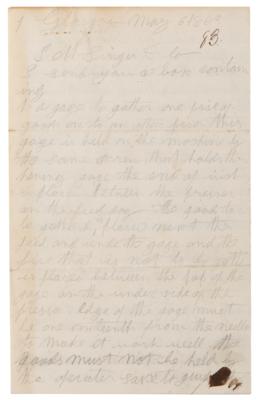 1 Glasgow May 6 186
93.
I M Singer & Co
I send you a box contain
ing
1 a gage to gather one piece of
goods on to an other piece this
gage is held on the machine by
the same screw that holds the
heming gage the end of it is
placed between the presser
and the feed dog the goods to
be gathered places next the
feed and under the gage and the
piece that is not to be gathered
is placed between the top of the
gage and the under side of the
presser edge of the gage must
be one sixteenth from the needle
to make it work well the
goods must not be held by
the operater save to guide